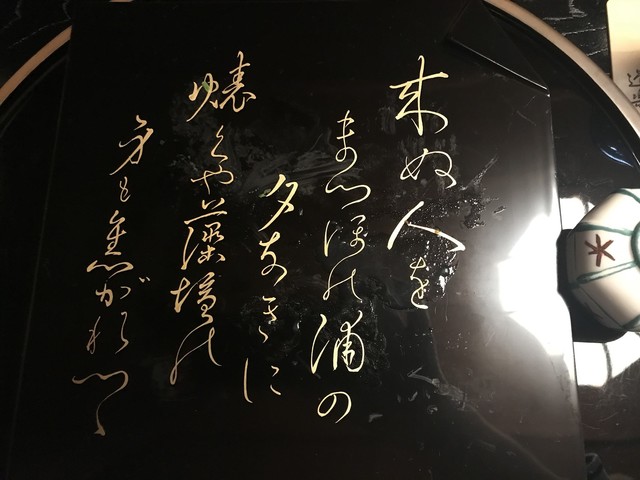 来ぬ人を
まつほの浦の
夕なぎに
焼くや藻塩の
身も焦がれつゝ